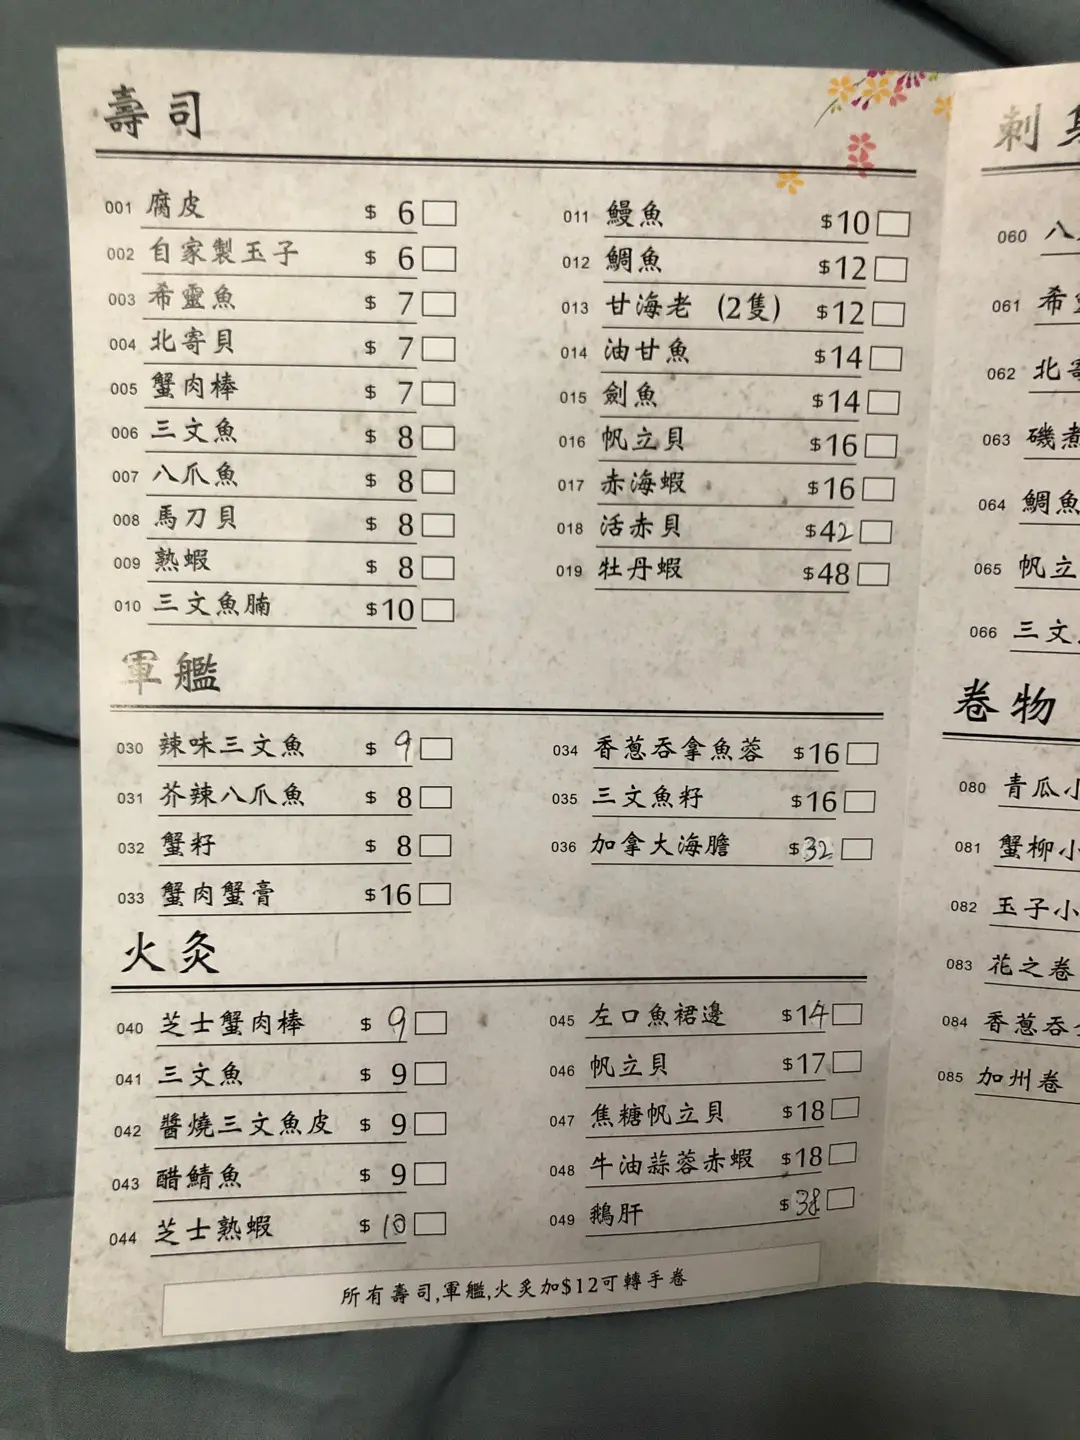 壽司
001 腐皮 $ 6
002 自家製玉子 $ 6
003 希靈魚 $ 7
004 北寄貝 $ 7
005 蟹肉棒 $ 7
006 三文魚 $ 8
007 八爪魚 $ 8
008 馬刀貝 $ 8
009 熟蝦 $ 8
010 三文魚腩 $10
011 鰻魚 $10
012 鯛魚 $12
013 甘海老 (2隻) $12
014 油甘魚 $14
015 劍魚 $14
016 帆立貝 $16
017 赤海蝦 $16
018 活赤貝 $42
019 牡丹蝦 $48
軍艦
030 辣味三文魚 $ 9
031 芥辣八爪魚 $ 8
032 蟹籽 $ 8
033 蟹肉蟹膏 $16
034 香蔥吞拿魚蓉 $16
035 三文魚籽 $16
036 加拿大海膽 $32
火炙
040 芝士蟹肉棒 $ 9
041 三文魚 $ 9
042 醬燒三文魚皮 $ 9
043 醋鯖魚 $ 9
044 芝士熟蝦 $ 10
045 左口魚裙邊 $14
046 帆立貝 $17
047 焦糖帆立貝 $18
048 牛油蒜蓉赤蝦 $18
049 鵝肝 $38
所有壽司,軍艦,火炙加$12可轉手卷
刺
060 八
061 希
062 北
063 磯煮
064 鯛魚
065 帆立
066 三文
卷物
080 青瓜小
081 蟹柳小
082 玉子小
083 花之卷
084 香蔥吞
085 加州卷